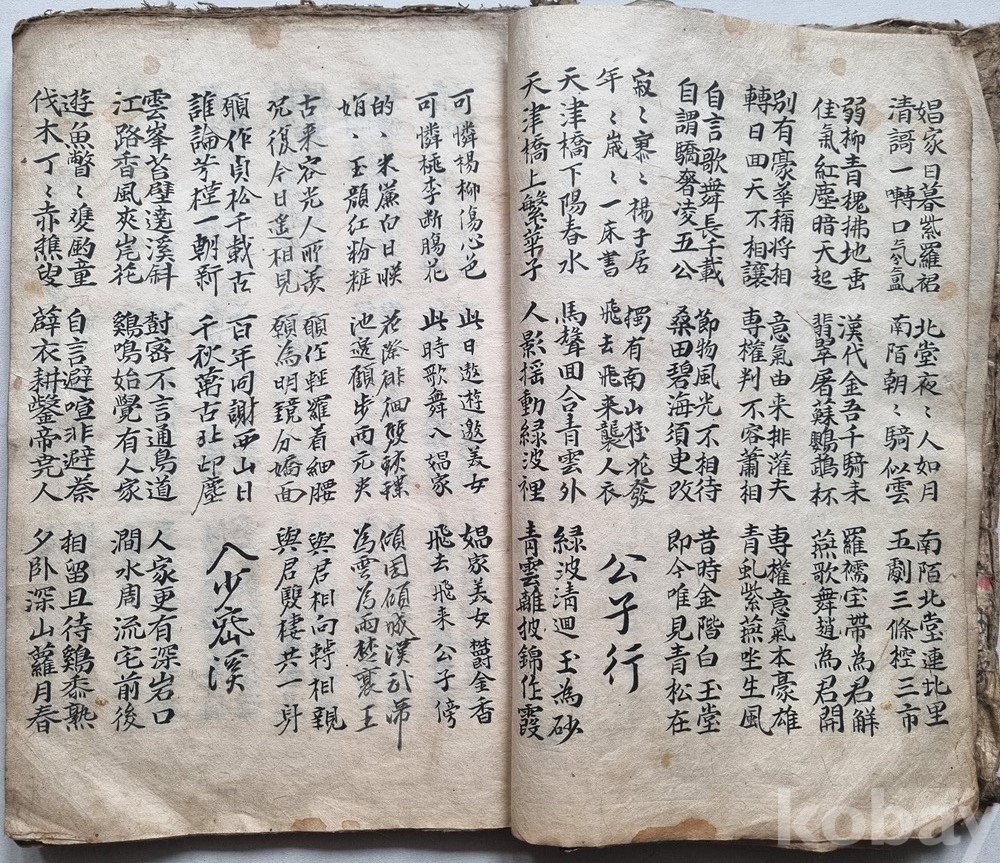 娼家日暮紫羅裙
清謌一囀口氛氳
北堂夜〻人如月
南陌朝〻騎似雲
南陌北堂連北里
五劇三條控三市
弱柳青槐拂地垂
佳氣紅塵暗天起
漢代金吾千騎来
翡翠屠蘇鸚鵡杯
羅襦宝帶為君解
燕歌舞趙為君開
別有豪華稱將相
轉日回天不相讓
意氣由来排灌夫
専權判不容蕭相
専權意氣本豪雄
青虬紫燕坐生風
自言歌舞長千載
自謂驕奢凌五公
節物風光不相待
桑田碧海須臾改
昔時金階白玉堂
即今唯見青松在
寂〻寥〻楊子居
年〻歳〻一床書
獨有南山桂花發
飛去飛来襲人衣
公子行
天津橋下陽春水
天津橋上繁華子
馬聲回合青雲外
人影揺動緑波裡
緑波清迴玉為砂
青雲離披錦作霞
可憐楊柳傷心色
可憐桃李断膓花
此日遨遊邀美女
此時歌舞入娼家
娼家美女欝金香
飛去飛来公子傍
的〻朱簾白日暎
娟〻玉顔紅粉粧
花際徘徊雙蛺蝶
池邊顧步両元央
傾國傾城漢武帝
為雲為雨楚襄王
古来容光人所羨
况復今日遥相見
願作輕羅着細腰
願為明鏡分嬌面
與君相向轉相親
與君雙棲共一身
願作貞松千載古
誰論芳槿一朝新
百年同謝西山日
千秋萬古北邙塵
入少密溪
雲峯苔壁遶溪斜
江路香風夾岸花
樹密不言通鳥道
鷄鳴始覚有人家
人家更有深岩口
澗水周流宅前後
遊魚瞥〻雙釣童
伐木丁〻赤樵叟
自言避喧非避秦
薜衣耕鑿帝尭人
相留且待鷄黍熟
夕卧深山蘿月春
kobay